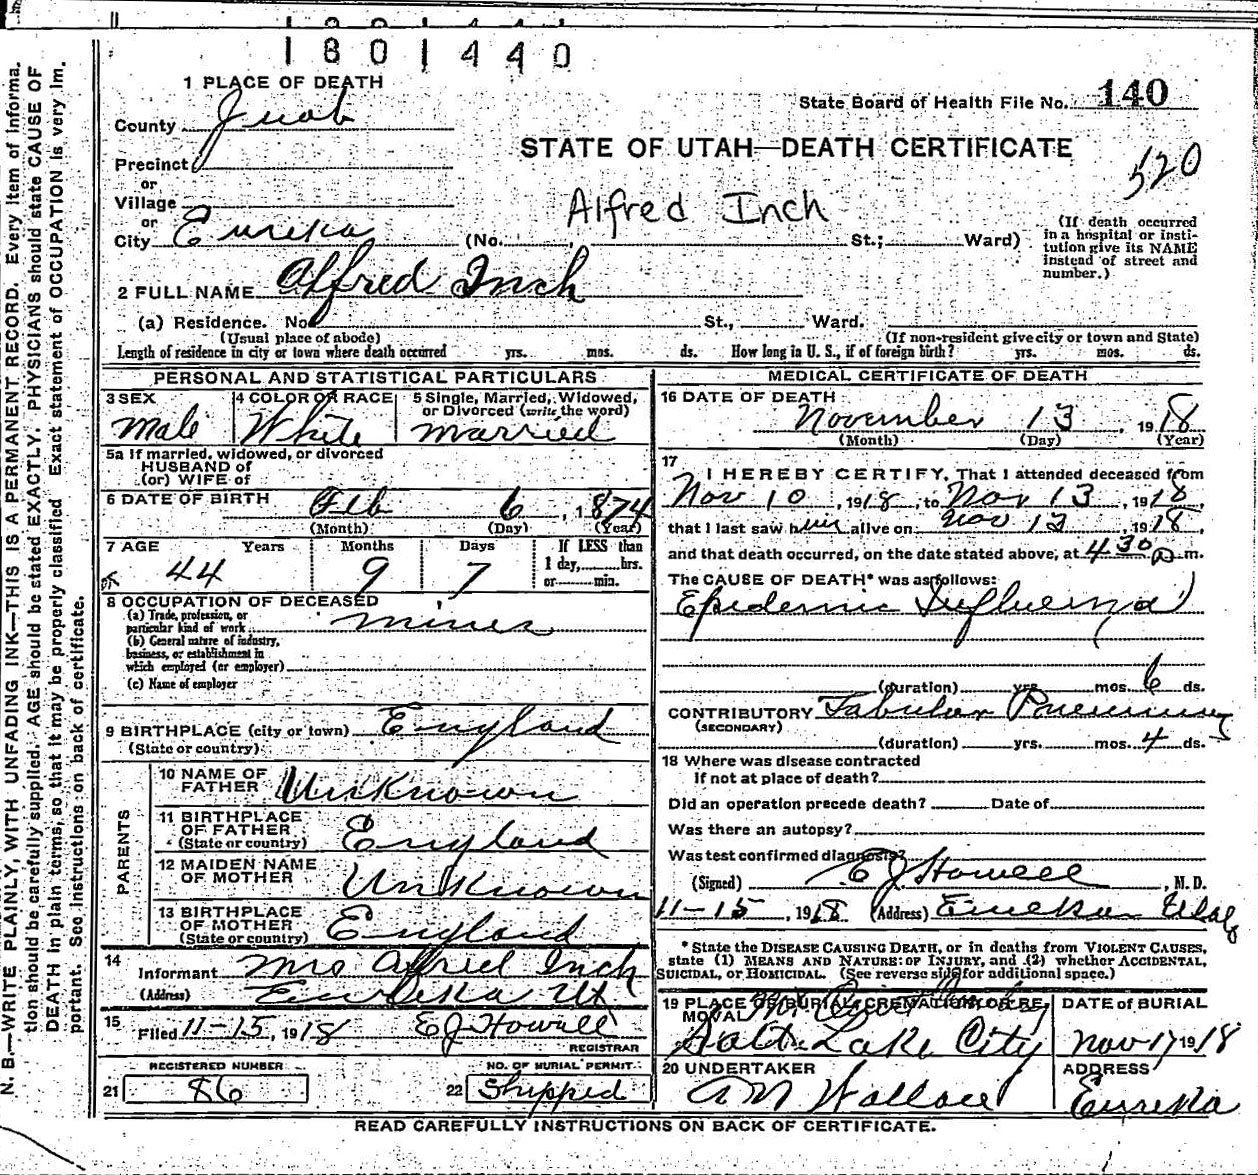 1801440
1 PLACE OF DEATH
State Board of Health File No. 140
County Juab
STATE OF UTAH—DEATH CERTIFICATE
520
Precinct
or
Village
or
City Eureka
Alfred Inch
(No. St.; Ward)
(If death occurred
in a hospital or insti-
tution give its NAME
instead of street and
number.)
2 FULL NAME Alfred Inch
(a) Residence. No. St., Ward.
(Usual place of abode)
(If non-resident give city or town and State)
Length of residence in city or town where death occurred yrs. mos. ds. How long in U. S., if of foreign birth? yrs. mos. ds.
PERSONAL AND STATISTICAL PARTICULARS
3 SEX
Male
4 COLOR OR RACE
White
5 Single, Married, Widowed,
or Divorced (write the word)
Married
5a If married, widowed, or divorced
HUSBAND of
(or) WIFE of
6 DATE OF BIRTH
Feb 6, 1874
(Month) (Day) (Year)
7 AGE Years Months Days
44 9 7
If LESS than
1 day, hrs.
or min.
8 OCCUPATION OF DECEASED
(a) Trade, profession, or
particular kind of work miner
(b) General nature of industry,
business, or establishment in
which employed (or employer)
(c) Name of employer
9 BIRTHPLACE (city or town) England
(State or country)
PARENTS
10 NAME OF
FATHER Unknown
11 BIRTHPLACE
OF FATHER
(State or country) England
12 MAIDEN NAME
OF MOTHER Unknown
13 BIRTHPLACE
OF MOTHER
(State or country) England
14
Informant Mrs Alfred Inch
(Address) Eureka Ut
15
Filed 11-15, 1918 EJ Howell
REGISTRAR
REGISTERED NUMBER
21 86
NO. OF BURIAL PERMIT
22 Shipped
MEDICAL CERTIFICATE OF DEATH
16 DATE OF DEATH
November 13, 1918
(Month) (Day) (Year)
17
I HEREBY CERTIFY, That I attended deceased from
Nov 10, 1918, to Nov 13, 1918,
that I last saw him alive on Nov 13, 1918,
and that death occurred, on the date stated above, at 430 p.m.
The CAUSE OF DEATH* was as follows:
Epidemic Influenza
(duration) yrs. mos. 6 ds.
CONTRIBUTORY
(SECONDARY)
(duration) yrs. mos. 4 ds.
18 Where was disease contracted
if not at place of death?
Did an operation precede death? Date of
Was there an autopsy?
Was test confirmed diagnosis?
(Signed) EJ Howell, M. D.
11-15, 1918 (Address) Eureka Utah
*State the DISEASE CAUSING DEATH, or in deaths from VIOLENT CAUSES,
state (1) MEANS AND NATURE OF INJURY, and (2) whether ACCIDENTAL,
SUICIDAL, or HOMICIDAL. (See reverse side for additional space.)
19 PLACE OF BURIAL, CREMATION OR RE-
MOVAL
Salt Lake City
DATE of BURIAL
Nov 17 1918
20 UNDERTAKER
AM Wallace
ADDRESS
Eureka
READ CAREFULLY INSTRUCTIONS ON BACK OF CERTIFICATE.
N. B.—WRITE PLAINLY, WITH UNFADING INK—THIS IS A PERMANENT RECORD. Every item of informa-
tion should be carefully supplied. AGE should be stated EXACTLY. PHYSICIANS should state CAUSE OF
DEATH in plain terms, so that it may be properly classified. Exact statement of OCCUPATION is very im-
portant. See instructions on back of certificate.